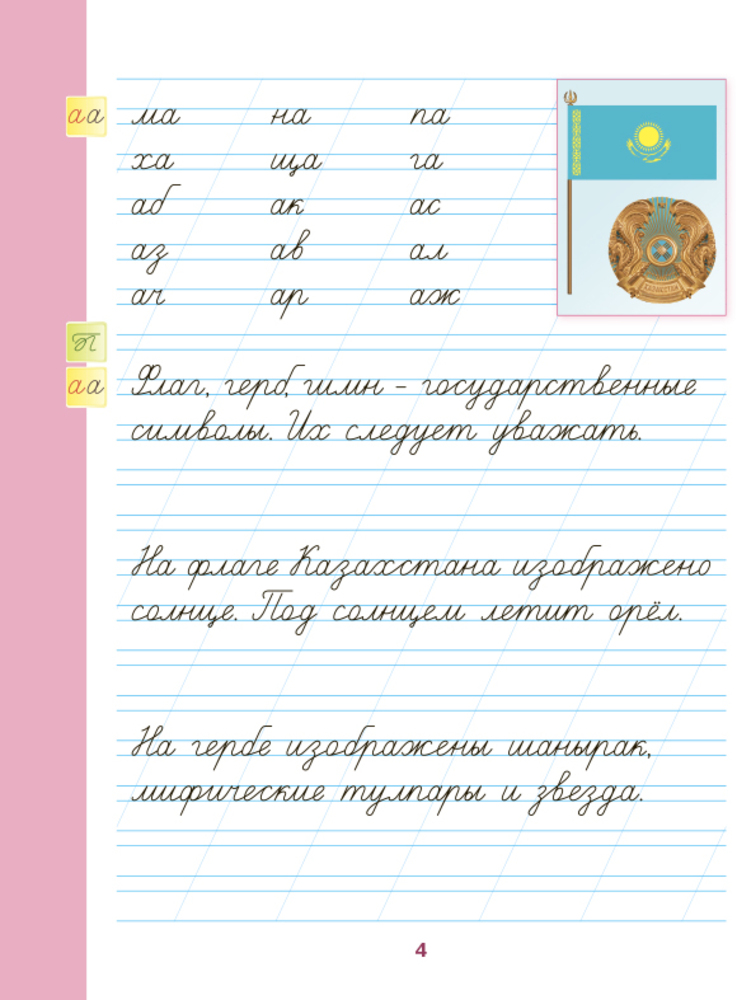 аа ма на па
ха ща га
аб ак ас
аз ав ал
ач ар аж
П
аа Флаг, герб, гимн – государственные
символы. Их следует уважать.
На флаге Казахстана изображено
солнце. Под солнцем летит орёл.
На гербе изображены шанырак,
мифические тулпары и звезда.
4